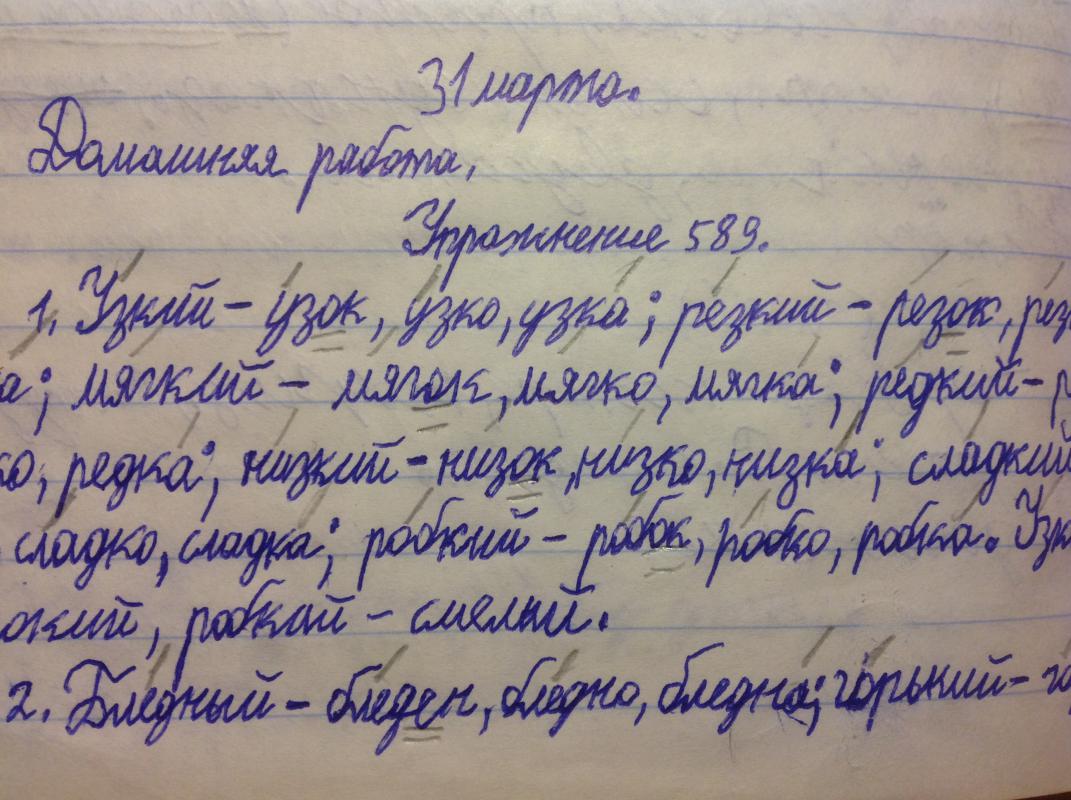 31 марта.
Домашняя работа,
Упражнение 589.
1. Узкий - узок, узко, узка; резкий - резок, рез
а; мягкий - мягок, мягко, мягка; редкий - р
ко, редка; низкий - низок, низко, низка; сладкий
сладко, сладка; робкий - робок, робко, робка. Узк
окий, робкий - смелый.
2. Бледный - бледен, бледно, бледна; горький - го